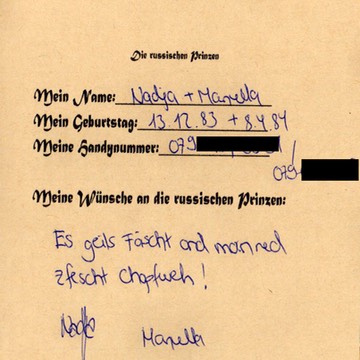 Die russischen Prinzen
Mein Name: Nadja + Marella
Mein Geburtstag: 13.12.83 + 8.4.84
Meine Handynummer: 079
079
Meine Wünsche an die russischen Prinzen:
Es geils Fäscht ond morn ned
zfescht Chopfweh!
Marella